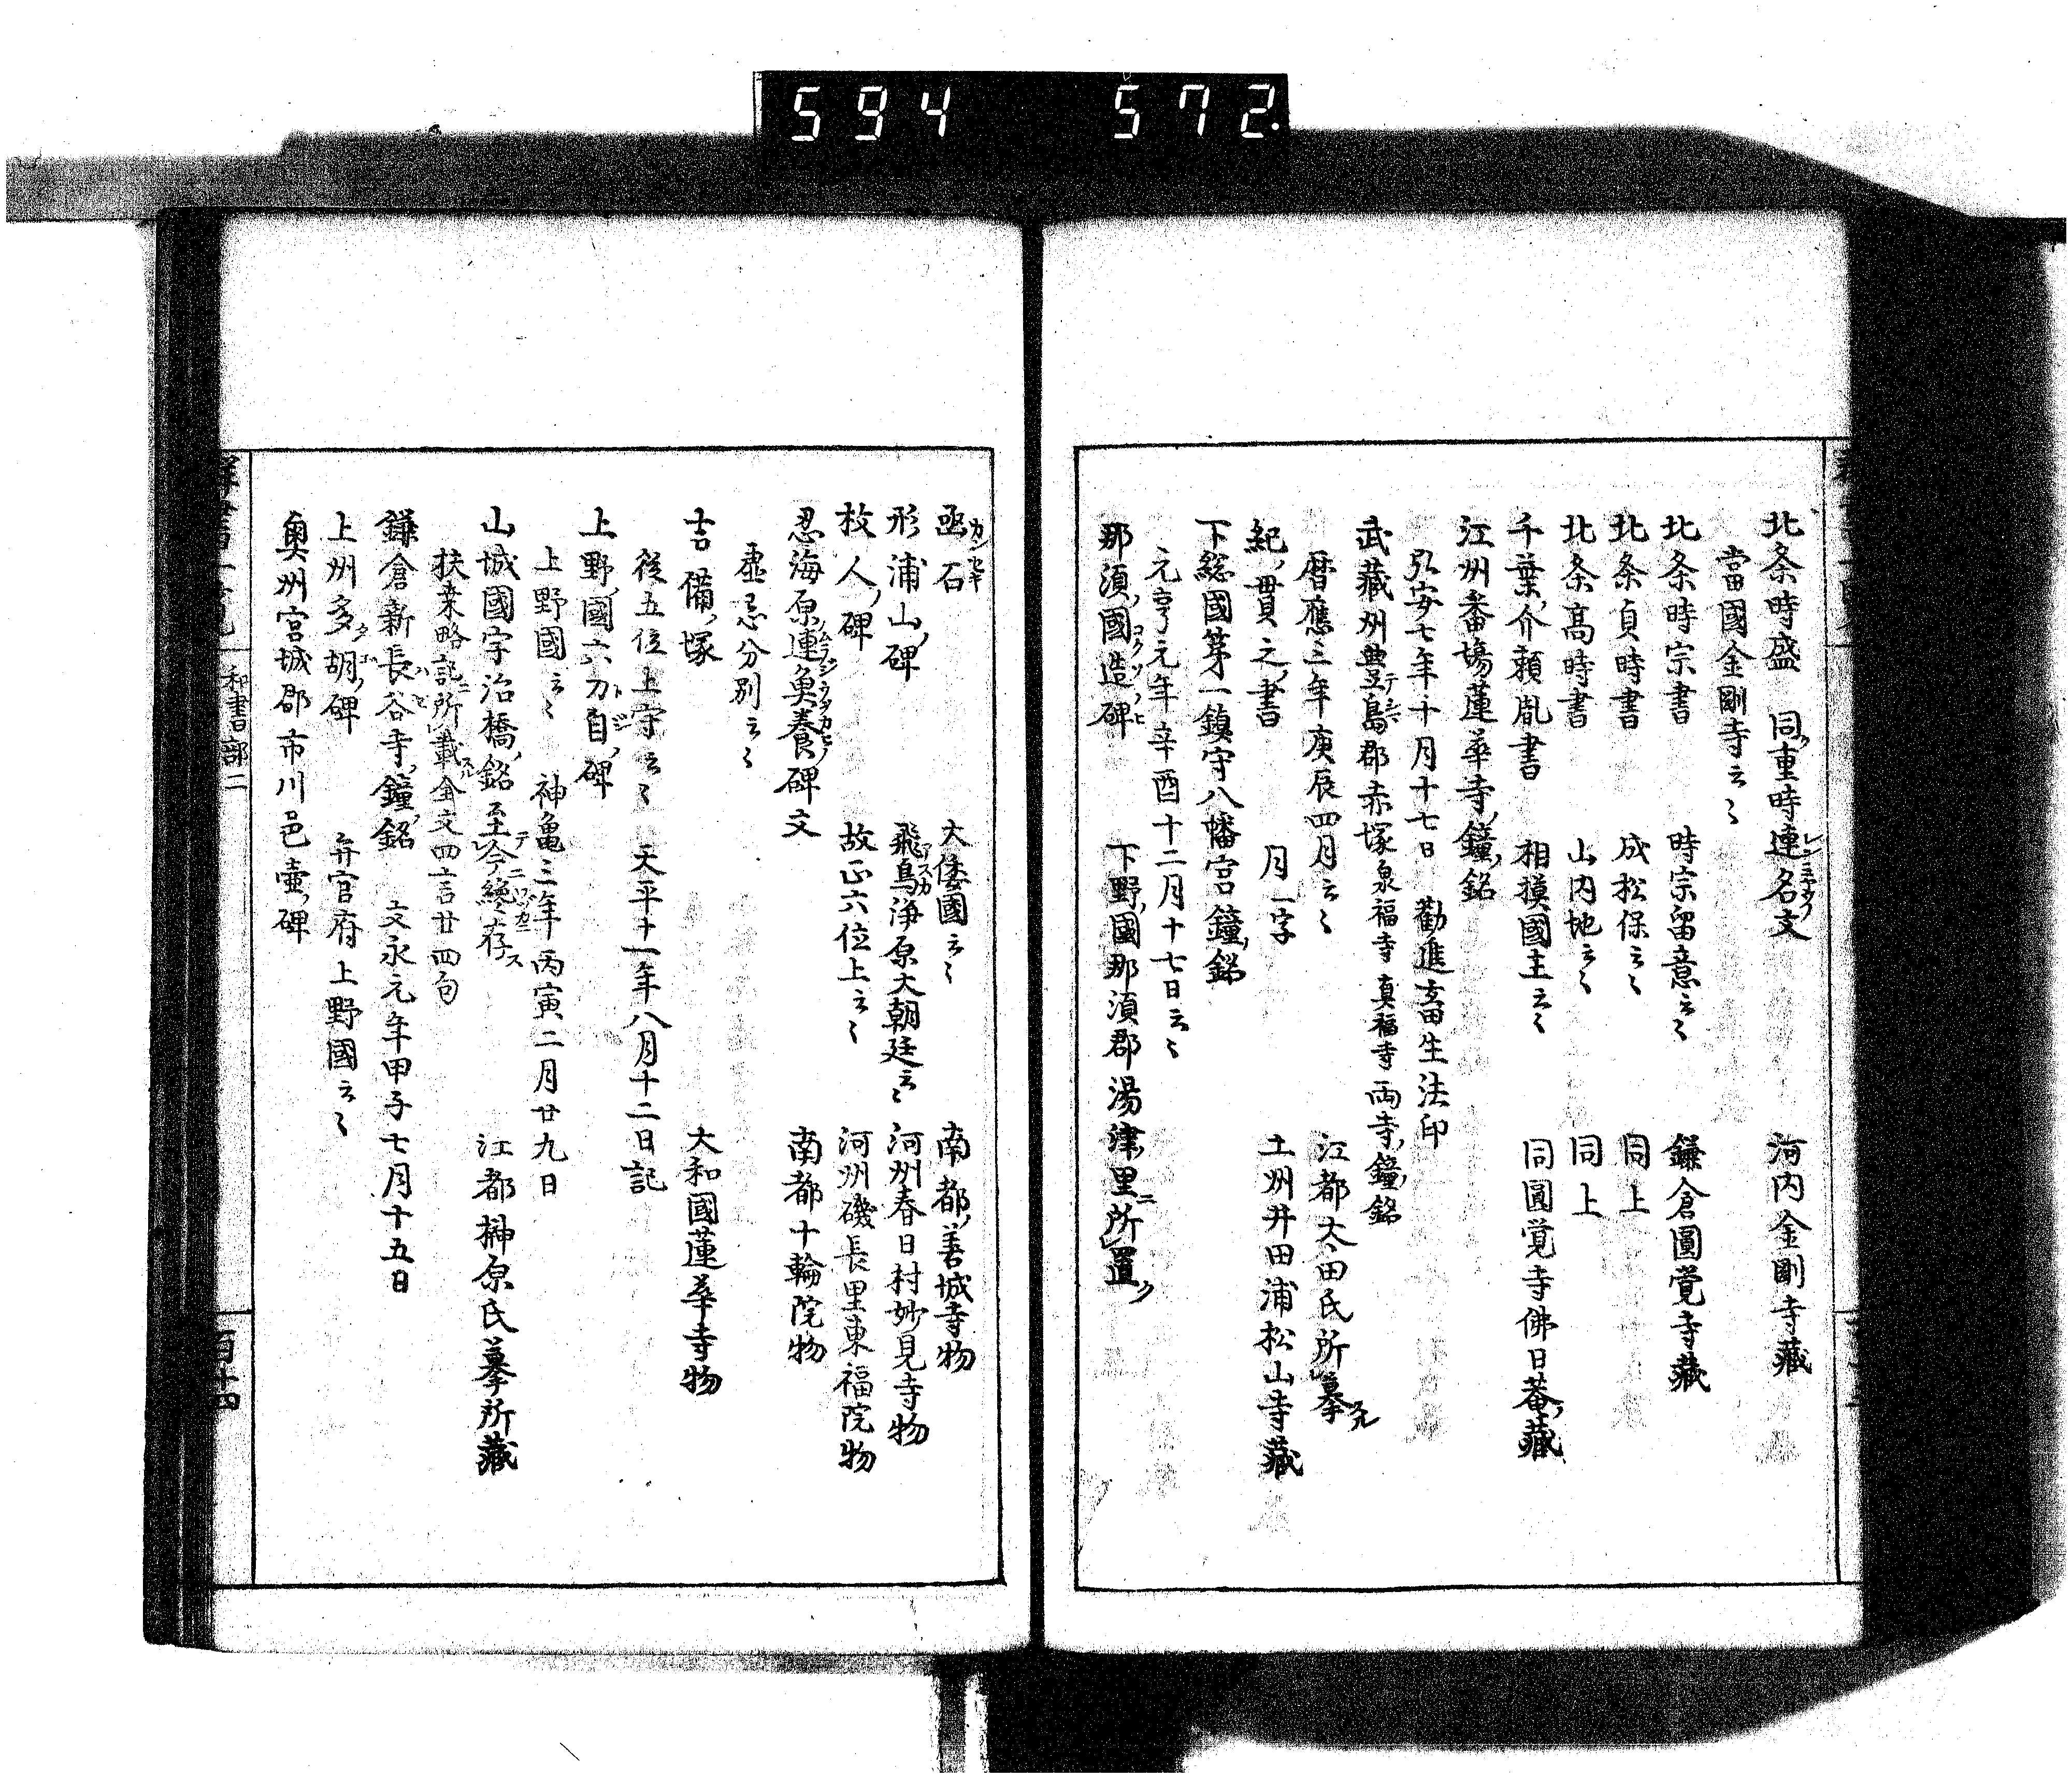 594 572.
北条時盛 同ク重時連名ノ文 河内金剛寺藏
當國金剛寺云〻
北条時宗書 時宗留意云〻 鎌倉圓覚寺藏
北条貞時書 成松保云〻 同上
北条高時書 山内地云〻 同上
千葉ノ介頼胤書 相摸國主云〻 同圓覚寺佛日菴ノ藏
江州番塲蓮華寺ノ鐘ノ銘
弘安七年十月十七日 勸進畜生法印
武藏州豊島郡赤塚泉福寺真福寺両寺ノ鐘ノ銘
暦應三年庚辰四月云〻 江都大田氏所摹スル
紀ノ貫之ノ書 月一字 土州井田浦松山寺藏
下総國第一鎮守八幡宮ノ鐘ノ銘
元亨元年辛酉十二月十七日云〻
那須ノ國造碑 下野ノ國那須郡湯津ノ里ニ所置ク
凾石 大倭國云〻 南都ノ善城寺物
形浦山ノ碑 飛鳥浄原大朝廷云〻 河州春日村妙見寺物
枚人ノ碑 故正六位上云〻 河州磯長里東福院物
忍海原ノ連魚養ノ碑文 南都十輪院物
虚忌分別云〻
吉備ノ塚 大和國蓮華寺物
従五位上守云〻 天平十一年八月十二日記
上野ノ國六刀自ノ碑
上野國云〻 神亀三年丙寅二月廿九日
山城國宇治橋ノ銘至テ今ニ纔ニ存ス 江都榊原氏摹所藏
扶桒略記ニ所載スル全文四言廿四句
鎌倉新長谷寺ノ鐘ノ銘 文永元年甲子七月十五日
上州多胡ノ碑 弁官府上野國云〻
奥州宮城郡市川邑壷ノ碑
和書部二
百十四